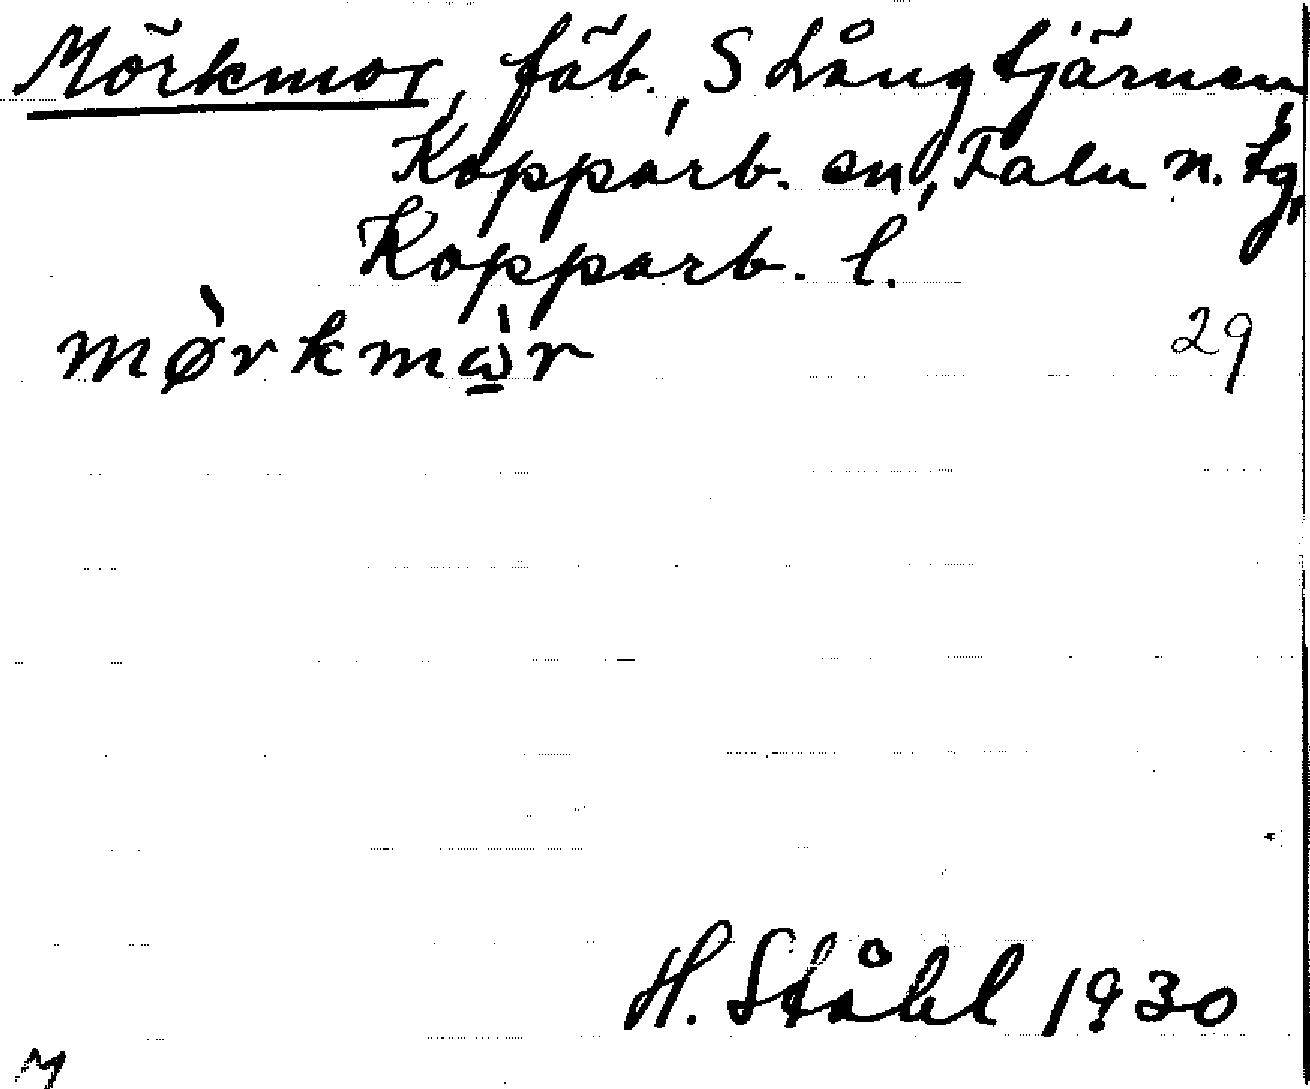 Mörkmor, fäb., S Långtjärnen,
Kopparb. sn, Falu n. tg,
Kopparb. l.
mø̀rkmὼr 29
H. Ståhl 1930
M